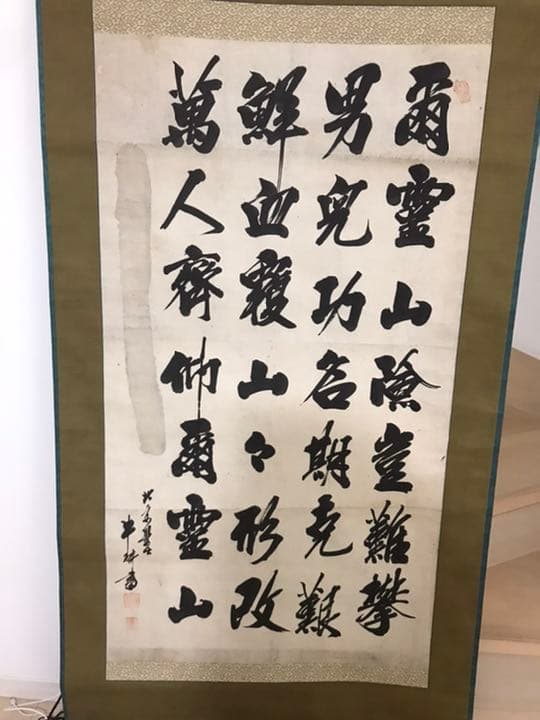 爾靈山險豈難攀
男兒功名期克艱
鮮血覆山々形改
萬人齊仰爾靈山